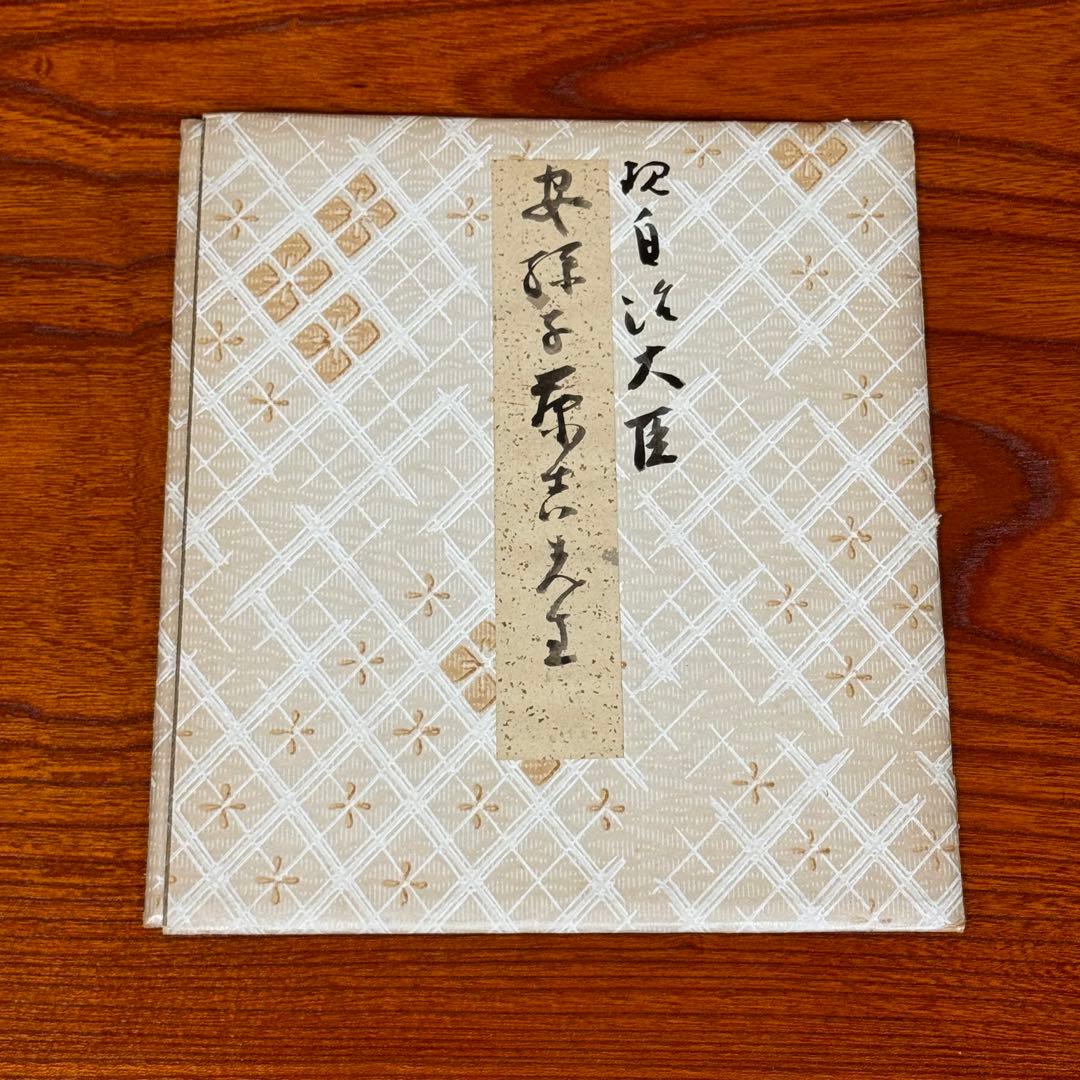 現自治大臣
安孫子藤吉先生